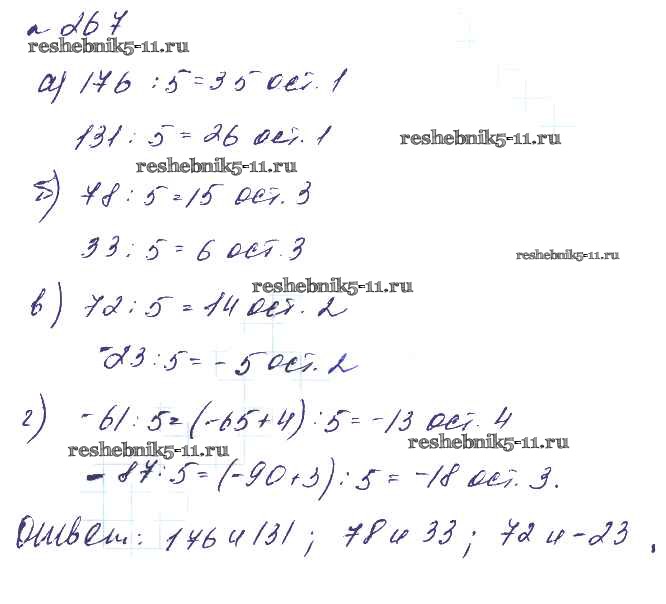 № 267
reshebnik5-11.ru
а) 176 : 5 = 35 ост. 1
131 : 5 = 26 ост. 1
reshebnik5-11.ru
reshebnik5-11.ru
б) 78 : 5 = 15 ост. 3
33 : 5 = 6 ост. 3
reshebnik5-11.ru
reshebnik5-11.ru
в) 72 : 5 = 14 ост. 2
-23 : 5 = -5 ост. 2
г) -61 : 5 = (-65+4) : 5 = -13 ост. 4
reshebnik5-11.ru
reshebnik5-11.ru
-87 : 5 = (-90+3) : 5 = -18 ост. 3.
Ответ: 176 и 131; 78 и 33; 72 и -23.